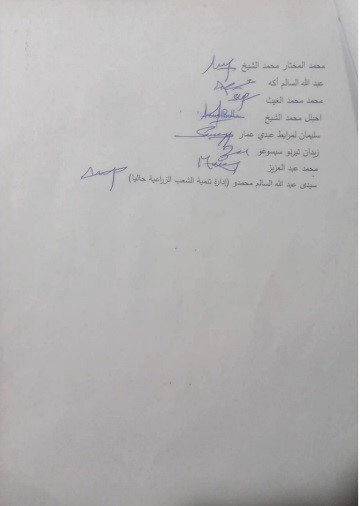 محمد المختار محمد الشيخ
عبد الله السالم أكه
محمد محمد الغيث
احبل محمد الشيخ
سليمان لمرابط عبدي عمار
زيدان تيرنو سيسوغو
محمد عبد العزيز
سيدي عبد الله السالم محمدو (إدارة تنمية الشعب الزراعية حاليا)